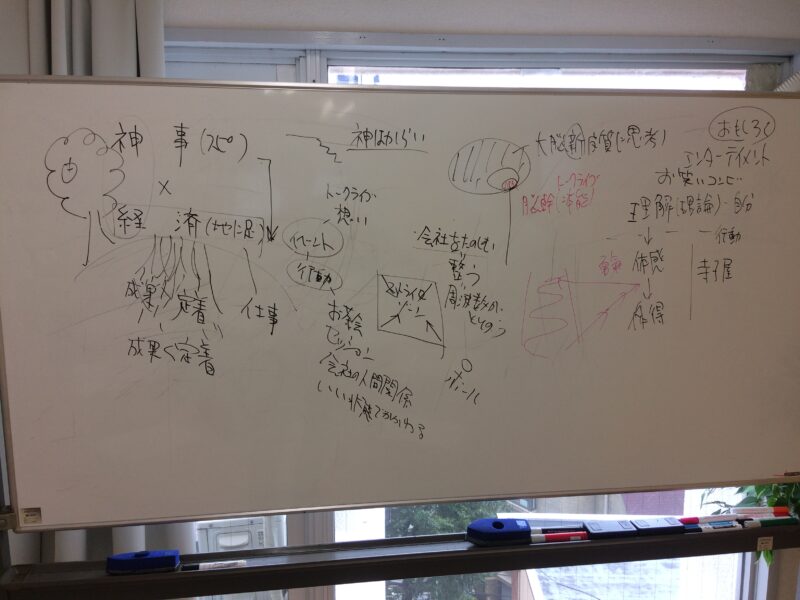 神事(スピ)
×
経済(地に足)
成果 定着 仕事
成果く定着
神はからい
トークライブ
想い
イベント
行動
お茶会
セッション
会社の人間関係
いい状態でかかわる
ストライク
ゾーン
会社をたのしむ
整う
周波数が
ととのう
ボール
大脳新皮質(思考)
トークライブ
脳幹(本能)
おもしろく
エンターテイメント
お笑いコンビ
理解(理論)・自分
行動
体感
体得
寺子屋